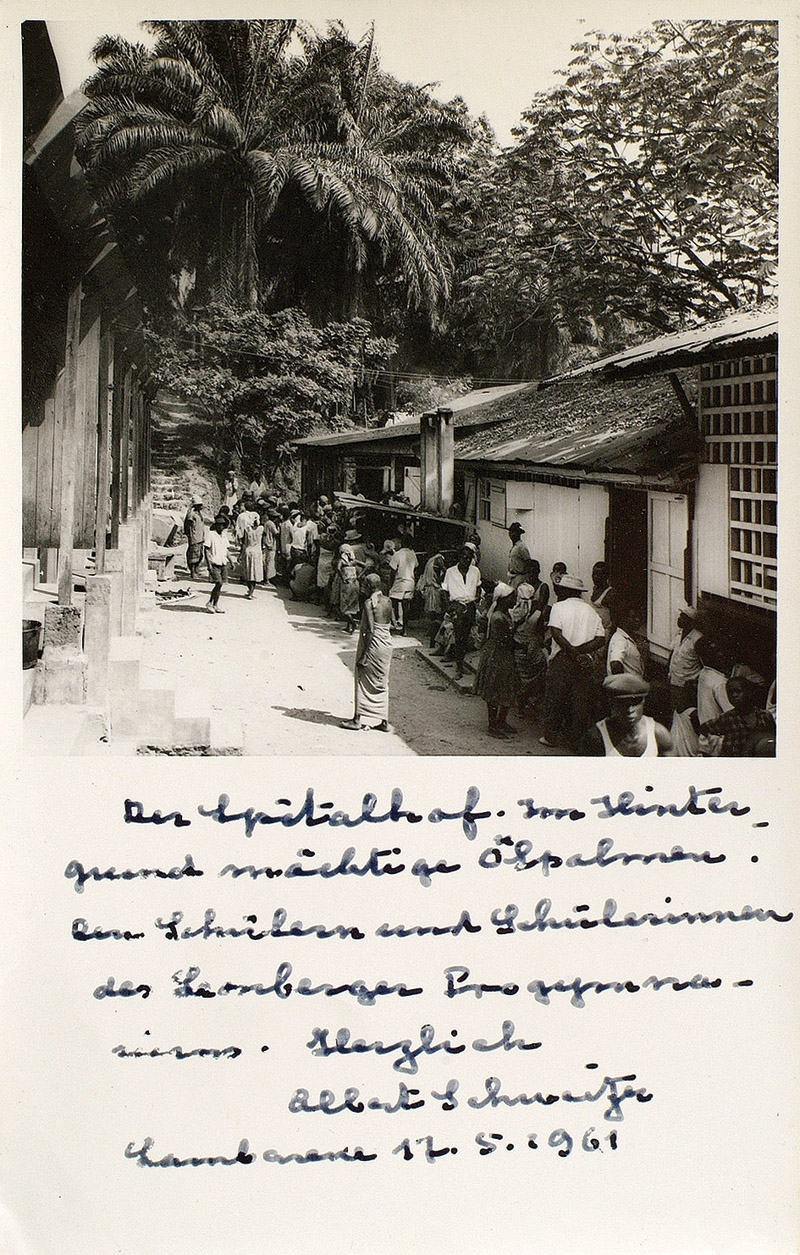 Der Spitalhof. Im Hinter-
grund mächtige Ölpalmen.
den Schülern und Schülerinnen
des Leonberger Progymna-
siums. Herzlich
Albert Schweitzer
Lambarene 17. 5. 1961